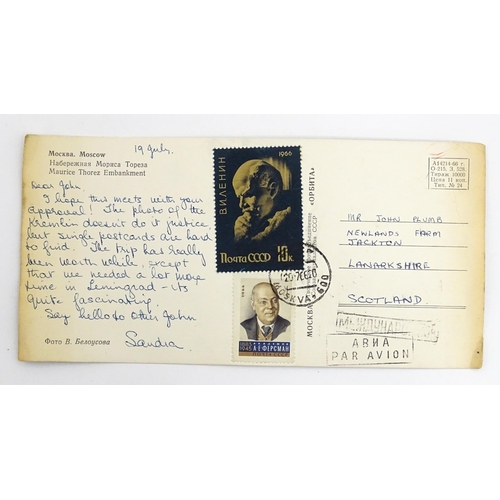 19 July.
Москва. Moscow
Набережная Мориса Тореза
Maurice Thorez Embankment
Dear John,
I hope this meets with your
approval! The photo of the
Kremlin doesn't do it justice
but single postcards are hard
to find. The trip has really
been worth while, except
that we needed a lot more
time in Leningrad – its
quite fascinating.
Say hello to other John
Sandra.
Фото В. Белоусова
1966
В.И.ЛЕНИН
ПОЧТА СССР 10к
MOSKVA 600
1883
1945
А.Е.ФЕРСМАН
"ОРБИТА"
СССР
МОСКВА
А14214 66 г.
Тираж 10000
Цена 11 коп.
Тип. № 24
MR JOHN PLUMB
NEWLANDS FARM
JACKTON
LANARKSHIRE
SCOTLAND
АВИА
PAR AVION